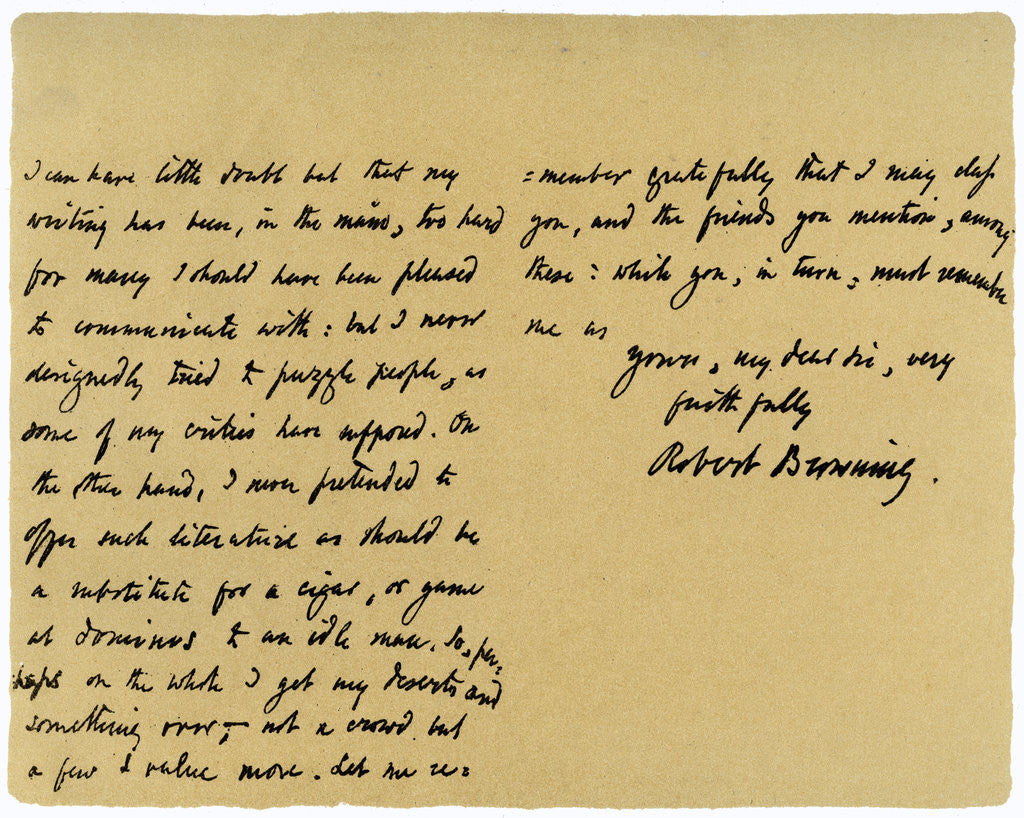 I can have little doubt but that my
writing has been, in the main, too hard
for many I should have been pleased
to communicate with: but I never
designedly tried to puzzle people, as
some of my critics have supposed. On
the other hand, I never pretended to
offer such literature as should be
a substitute for a cigar, or game
at dominos to an idle man. So, per=
haps on the whole I get my deserts and
something over,— not a crowd but
a few I value more. Let me re=
=member gratefully that I may class
you, and the friends you mention, among
these: while you, in turn, must remember
me as
yours, my dear Sir, very
faithfully
Robert Browning.